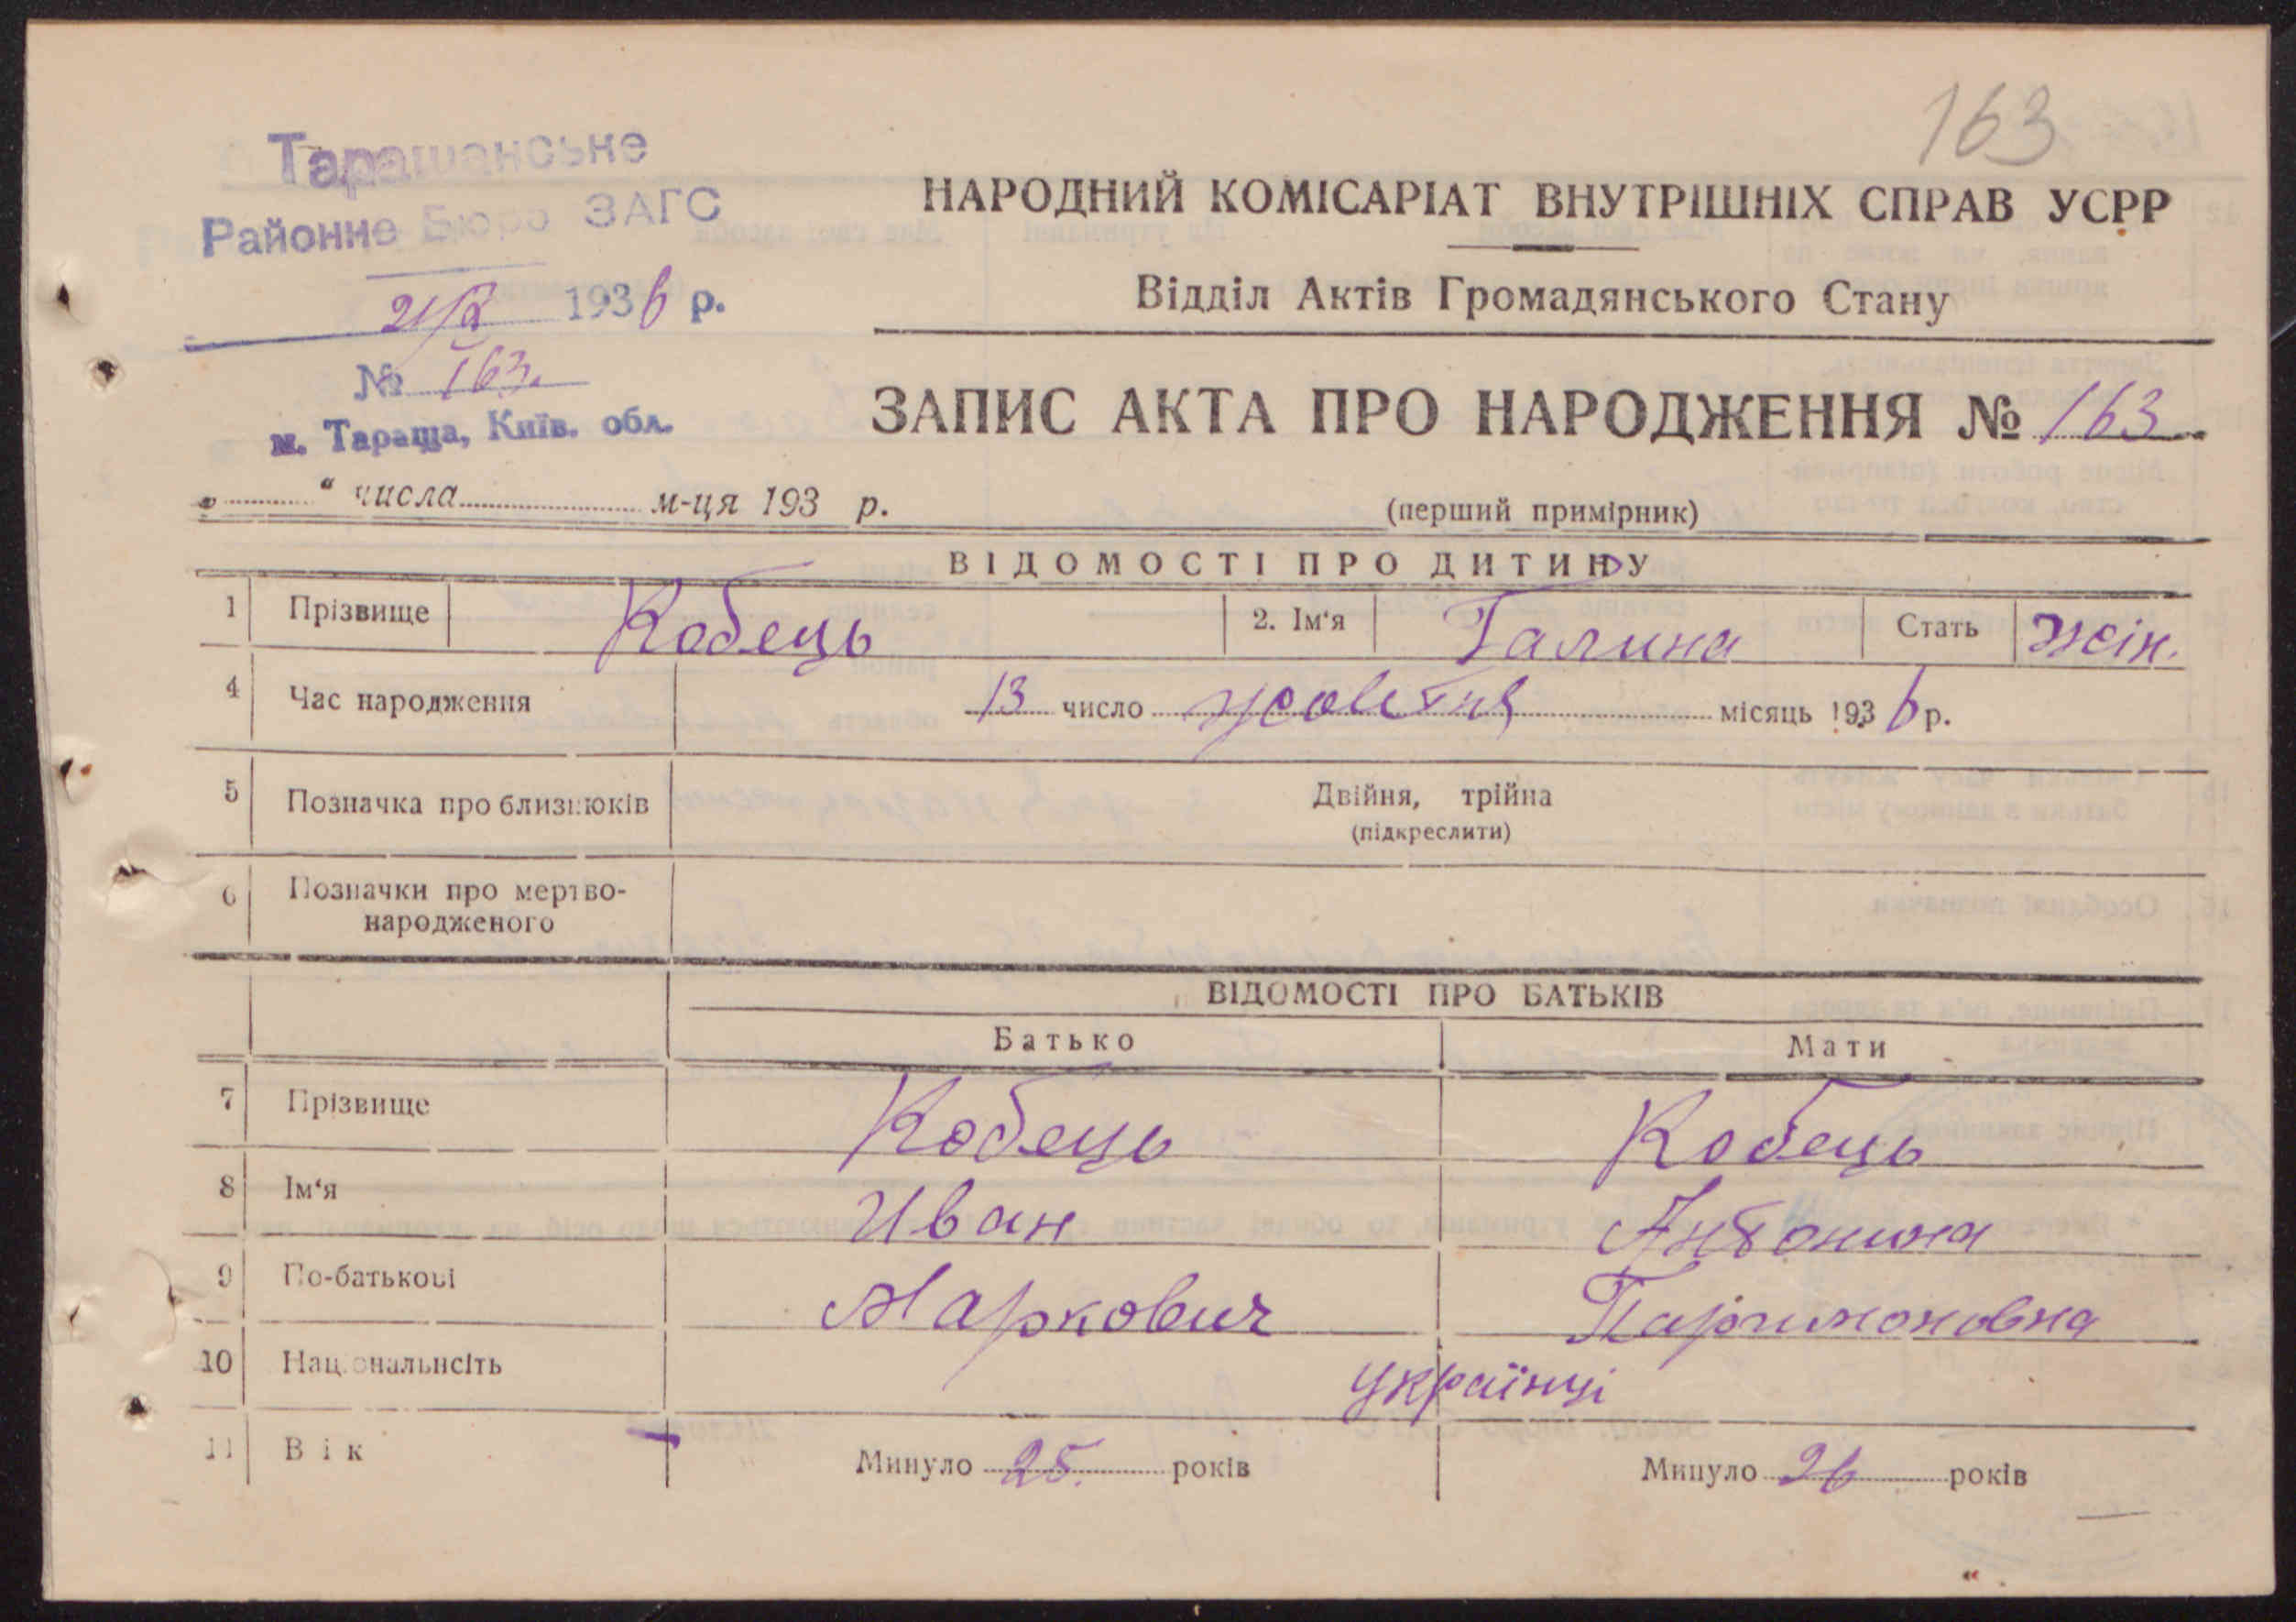 163
Таращанське
Районне Бюро ЗАГС
21/X 1936 р.
№ 163.
м. Тараща, Київ. обл.
НАРОДНИЙ КОМІСАРІАТ ВНУТРІШНІХ СПРАВ УСРР
Відділ Актів Громадянського Стану
ЗАПИС АКТА ПРО НАРОДЖЕННЯ № 163
„ “ числа м-ця 193 р.
(перший примірник)
ВІДОМОСТІ ПРО ДИТИНУ
1 Прізвище Кобець 2. Ім‘я Галина Стать жін.
4 Час народження 13 число жовтня місяць 1936 р.
5 Позначка про близнюків Двійня, трійна
(підкреслити)
6 Позначки про мертво-
народженого
ВІДОМОСТІ ПРО БАТЬКІВ
Батько Мати
7 Прізвище Кобець Кобець
8 Ім‘я Иван Антонина
9 По-батькові Маркович Паримоновна
10 Національнсіть українці
11 Вік Минуло 25. років Минуло 26 років